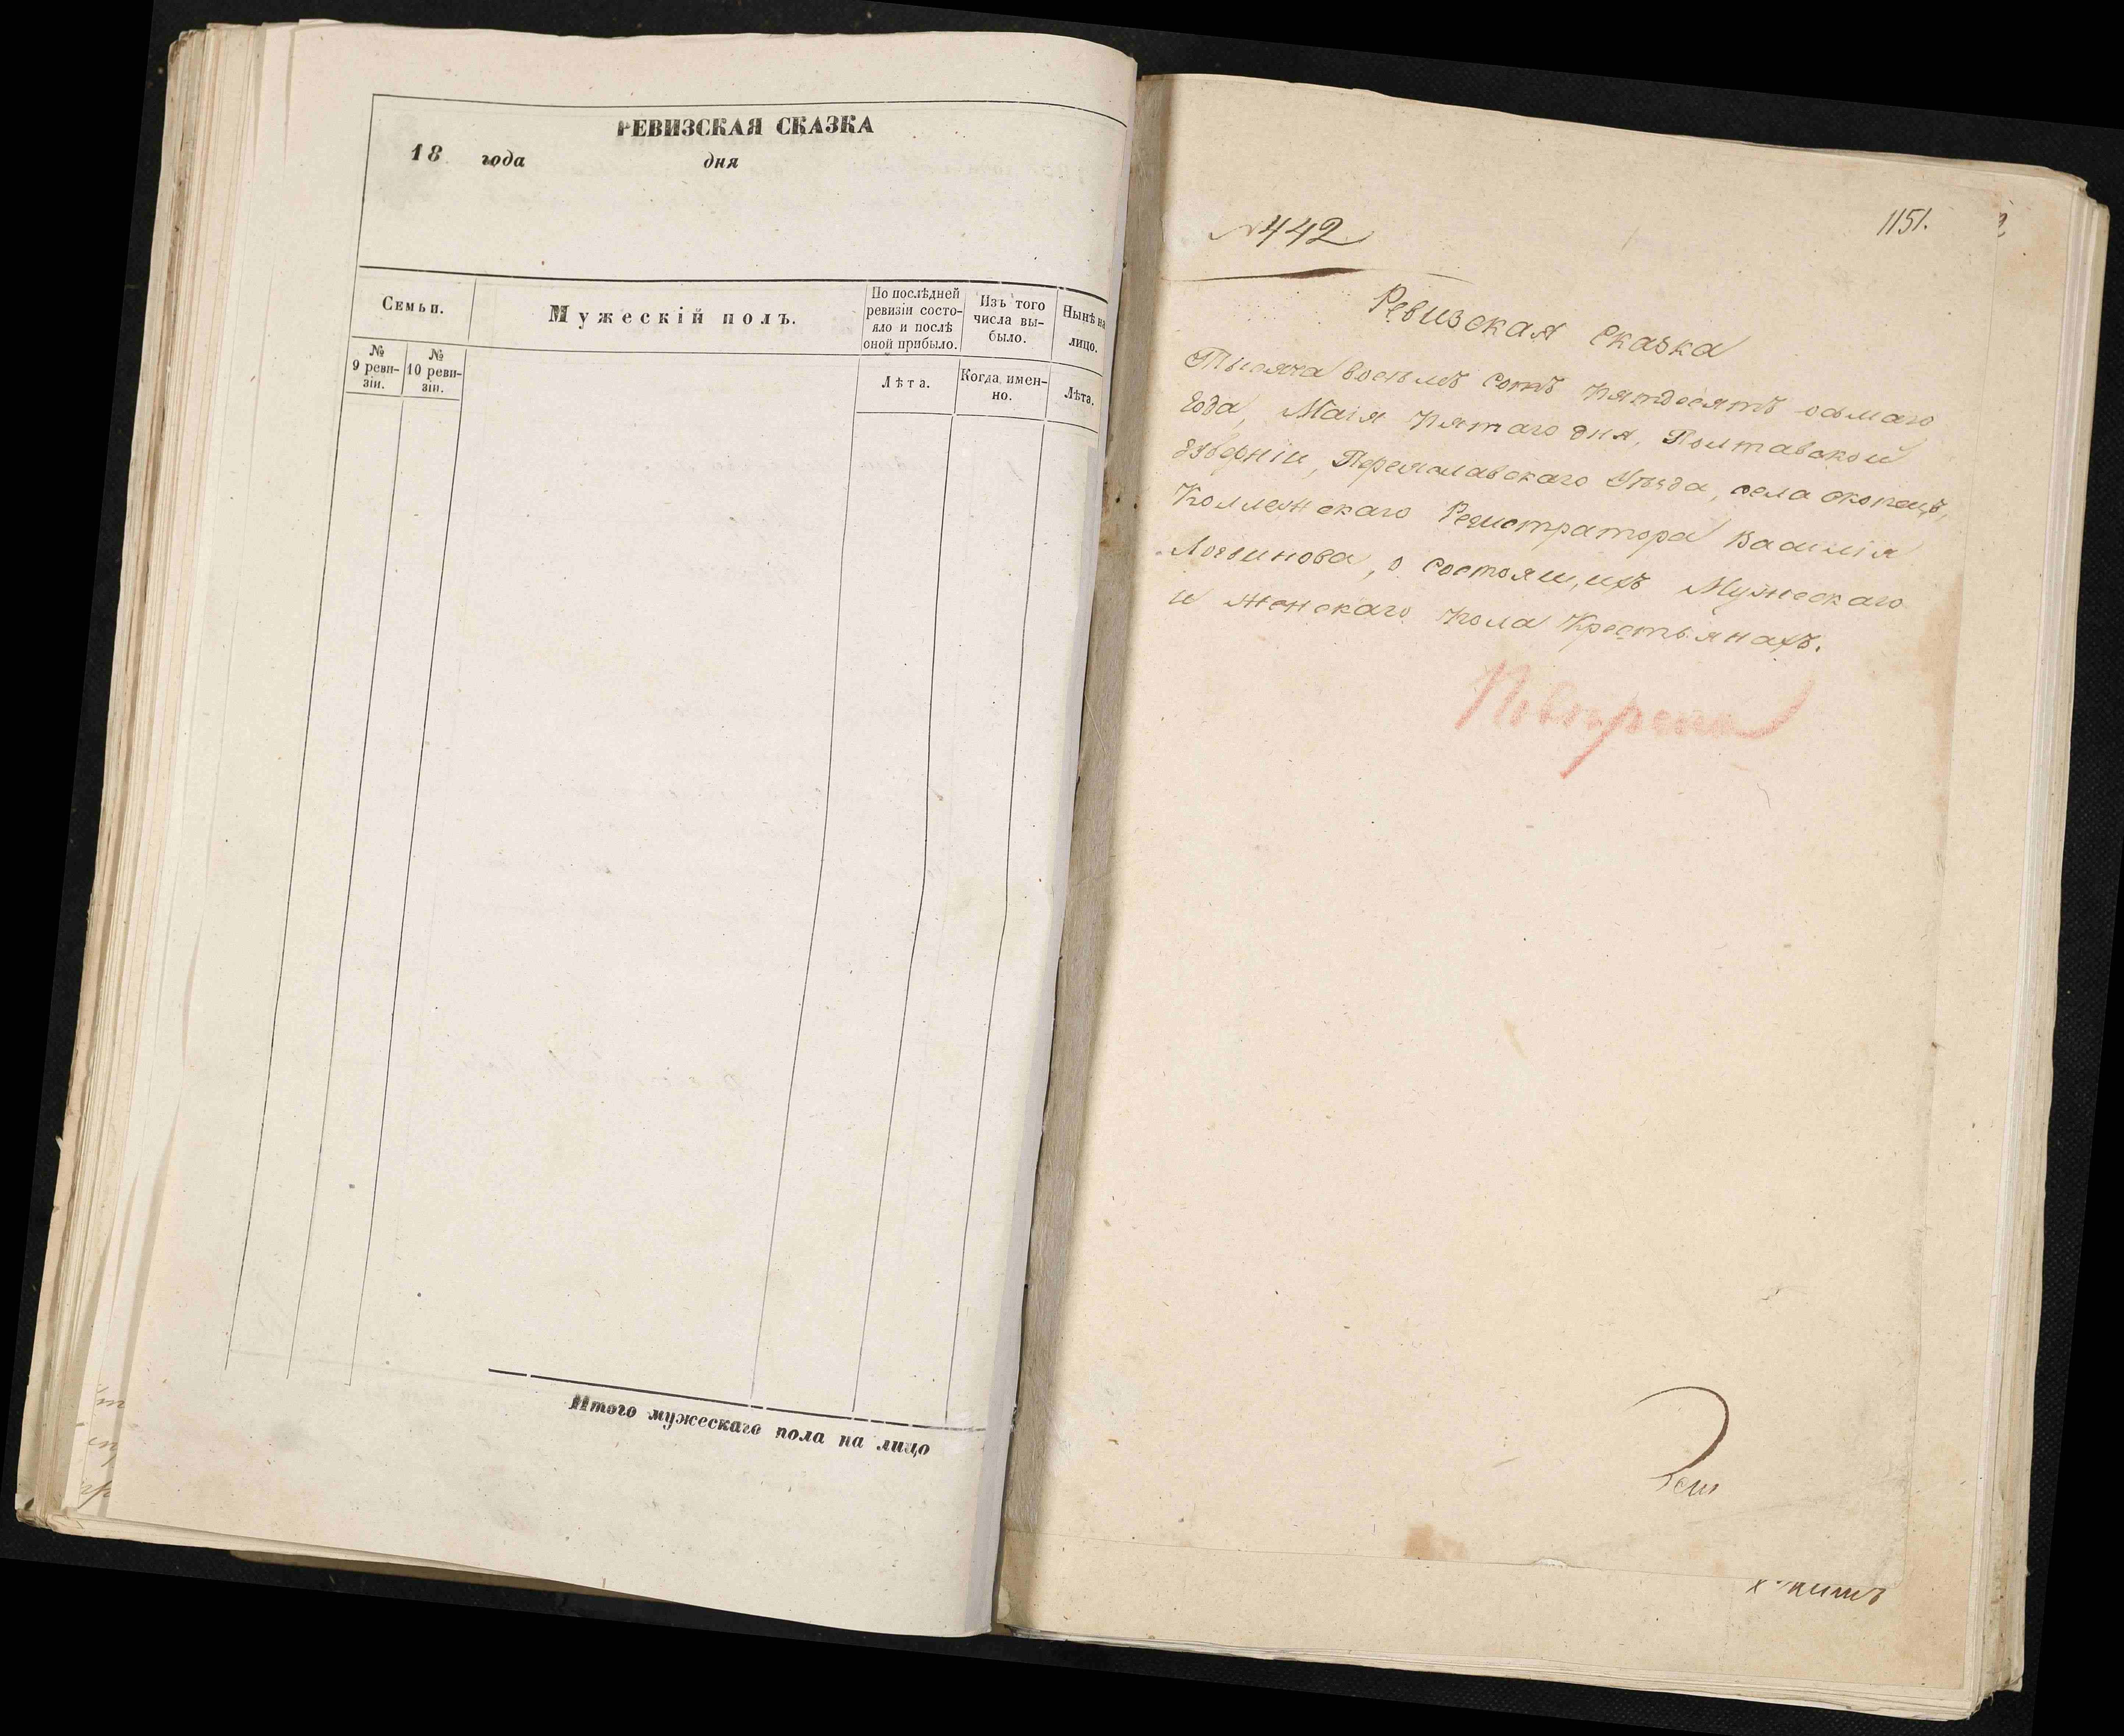 РЕВИЗСКАЯ СКАЗКА
18 года дня
Семьи.
№ 9 реви-
зіи.
№ 10 реви-
зіи.
Мужескій полъ.
По послѣдней
ревизіи состо-
яло и послѣ
оной прибыло.
Лѣта.
Изъ того
числа вы-
было.
Когда имен-
но.
Нынѣ на
лицо.
Лѣта.
Итого мужескаго пола на лицо
№ 442
1151.
Ревизская Сказка
Тысяча восемь сотъ пятдесятъ осмаго
года, Маія пятаго дня, Полтавской
губерніи, Переяславскаго Уѣзда, села скопець,
Коллежскаго Регистратора Василія
Логвинова, о состоящихъ Мужескаго
и женскаго пола Крестьянахъ.
Повѣрена